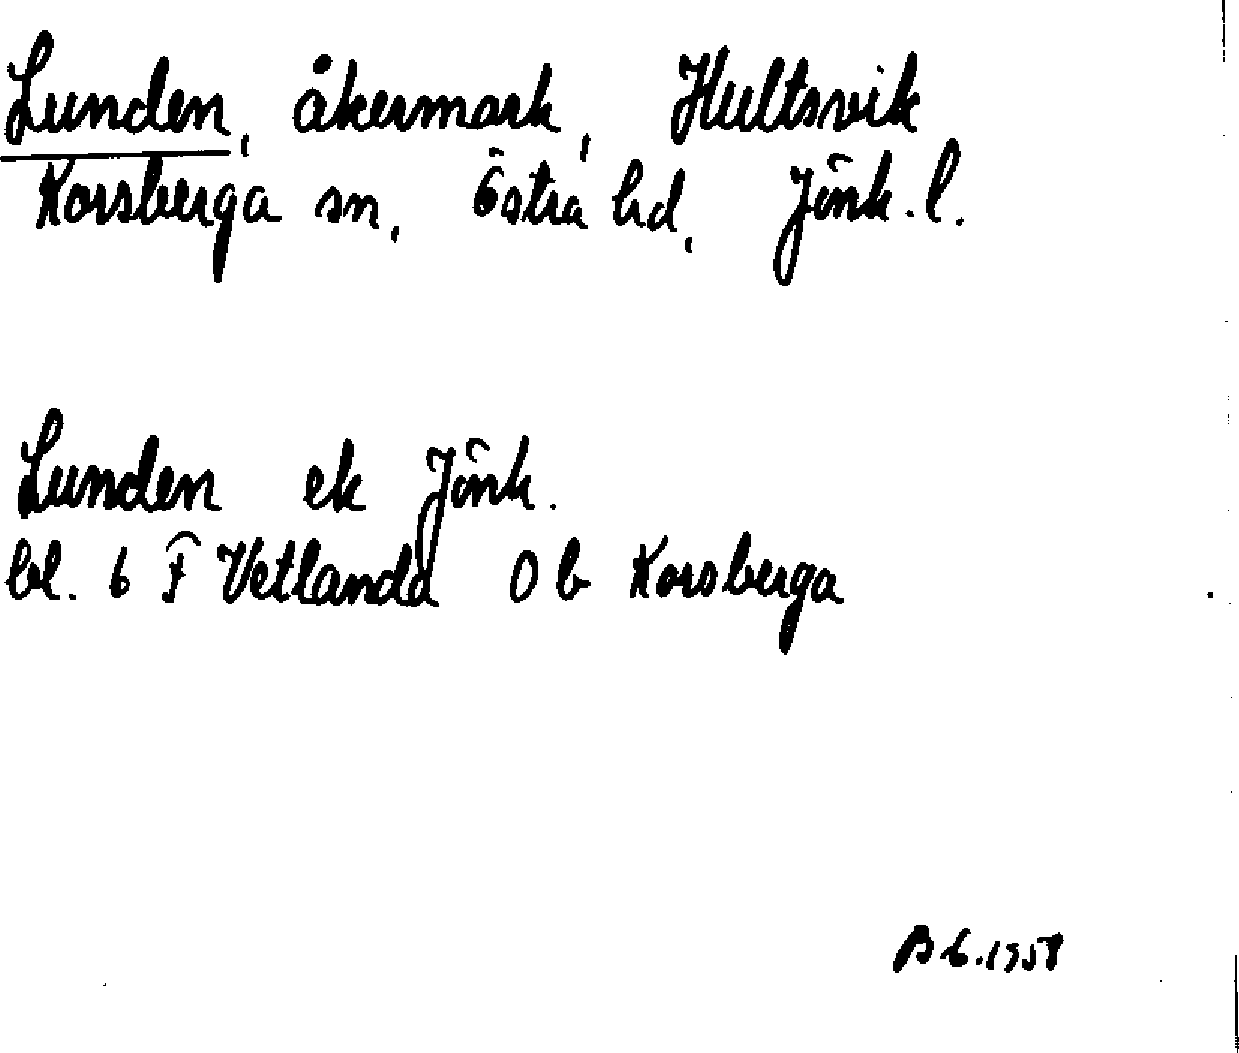 Lunden, åkermark, Hultsvik
Korsberga sn, Östra hd, Jönk. l.
Lunden ek Jönk.
bl. 6 F Vetlanda 0 b Korsberga